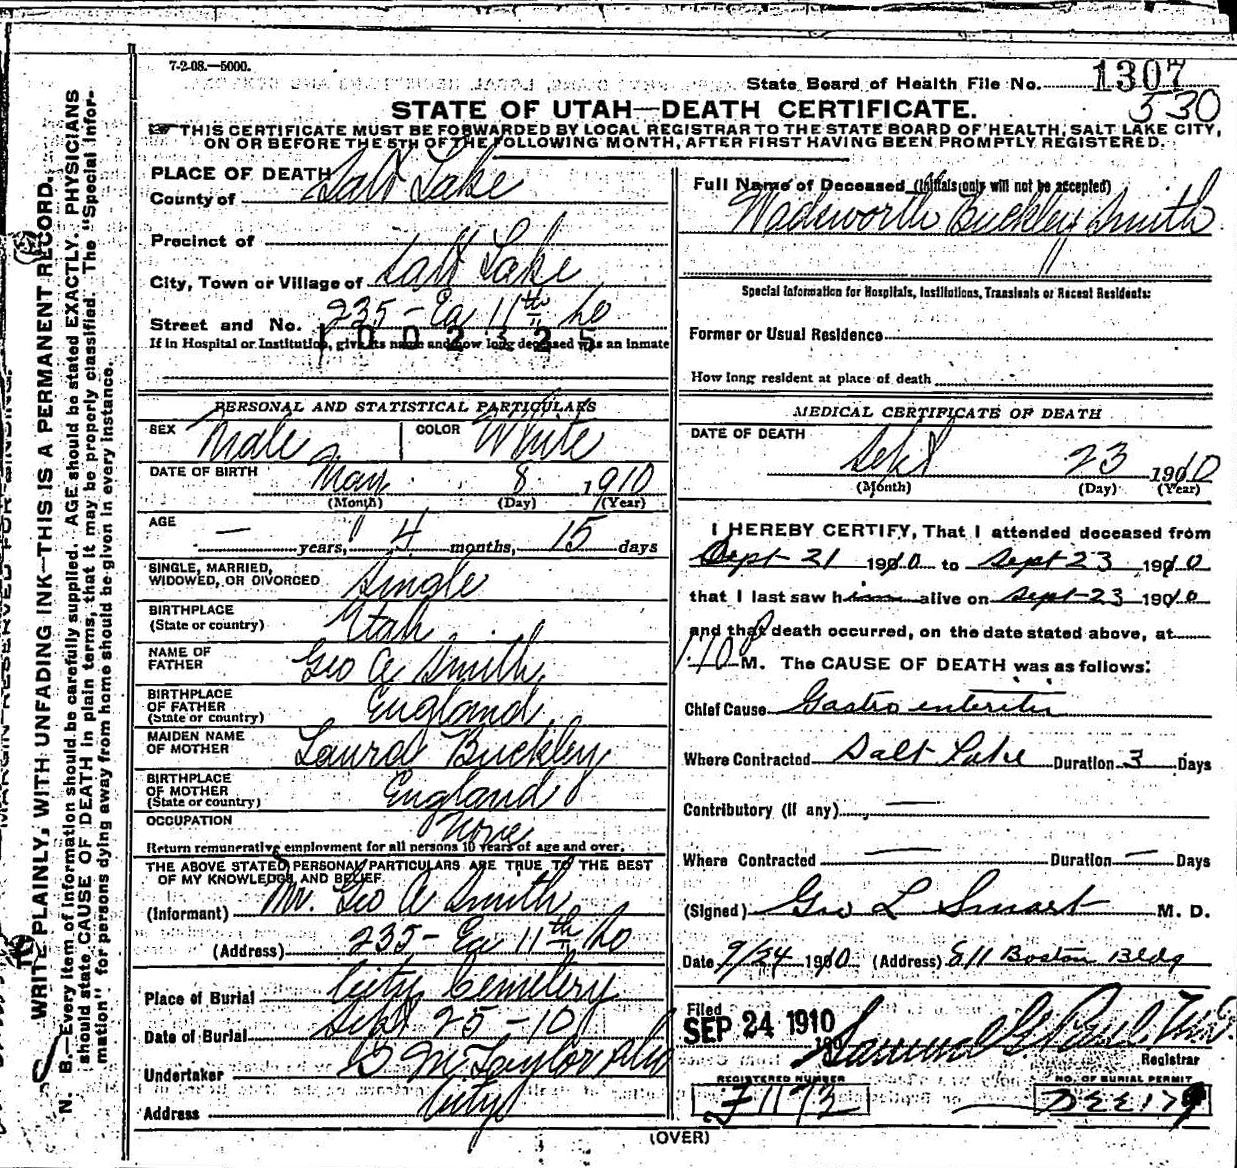 7-2-08.—5000.
State Board of Health File No. 1307
530
STATE OF UTAH—DEATH CERTIFICATE.
THIS CERTIFICATE MUST BE FORWARDED BY LOCAL REGISTRAR TO THE STATE BOARD OF HEALTH, SALT LAKE CITY,
ON OR BEFORE THE 5TH OF THE FOLLOWING MONTH, AFTER FIRST HAVING BEEN PROMPTLY REGISTERED.
WRITE PLAINLY, WITH UNFADING INK—THIS IS A PERMANENT RECORD.
N. B.—Every item of information should be carefully supplied. AGE should be stated EXACTLY. PHYSICIANS
should state CAUSE OF DEATH in plain terms, that it may be properly classified. The "Special Infor-
mation" for persons dying away from home should be given in every instance.
PLACE OF DEATH
County of Salt Lake
Precinct of
City, Town or Village of Salt Lake
Street and No. 235 - Ea 11th So
1002325
If in Hospital or Institution, give its name and how long deceased was an inmate
PERSONAL AND STATISTICAL PARTICULARS
SEX Male COLOR White
DATE OF BIRTH May 8 1910
(Month) (Day) (Year)
AGE — years, 4 months, 15 days
SINGLE, MARRIED,
WIDOWED, OR DIVORCED Single
BIRTHPLACE
(State or country) Utah
NAME OF
FATHER Geo A Smith
BIRTHPLACE
OF FATHER
(State or country) England
MAIDEN NAME
OF MOTHER Laura Buckley
BIRTHPLACE
OF MOTHER
(State or country) England
OCCUPATION None
Return remunerative employment for all persons 10 years of age and over.
THE ABOVE STATED PERSONAL PARTICULARS ARE TRUE TO THE BEST
OF MY KNOWLEDGE AND BELIEF
(Informant) Mr. Geo A Smith
(Address) 235 - Ea 11th So
Place of Burial City Cemetery
Date of Burial Sept 25 - 10
Undertaker Taylor
Address City
Full Name of Deceased (Initials only will not be accepted)
Wadsworth Buckley Smith
Special Information for Hospitals, Institutions, Transients or Recent Residents:
Former or Usual Residence
How long resident at place of death
MEDICAL CERTIFICATE OF DEATH
DATE OF DEATH
Sept 23 1910
(Month) (Day) (Year)
I HEREBY CERTIFY, That I attended deceased from
Sept 21 1910 to Sept 23 1910
that I last saw him alive on Sept 23 1910
and that death occurred, on the date stated above, at
M. The CAUSE OF DEATH was as follows:
Chief Cause Gastro enteritis
Where Contracted Salt Lake Duration 3 Days
Contributory (if any) —
Where Contracted — Duration — Days
(Signed) Geo L Smart M. D.
Date 9/24 1910 (Address) 811 Boston Bldg
Filed
SEP 24 1910 Samuel G. Paul, M.D.
Registrar
REGISTERED NUMBER NO. OF BURIAL PERMIT
(OVER)